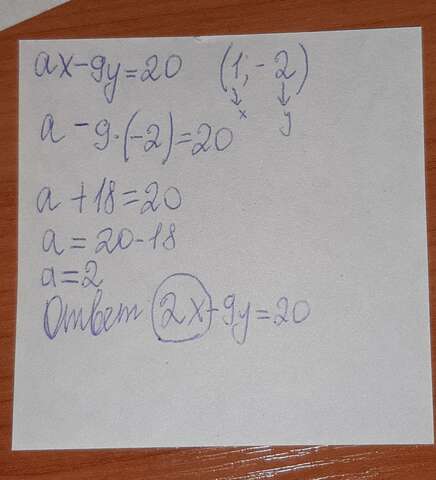 ax-9y=20 (1;-2)
x y
a-9·(-2)=20
a+18=20
a=20-18
a=2
Ответ 2x-9y=20